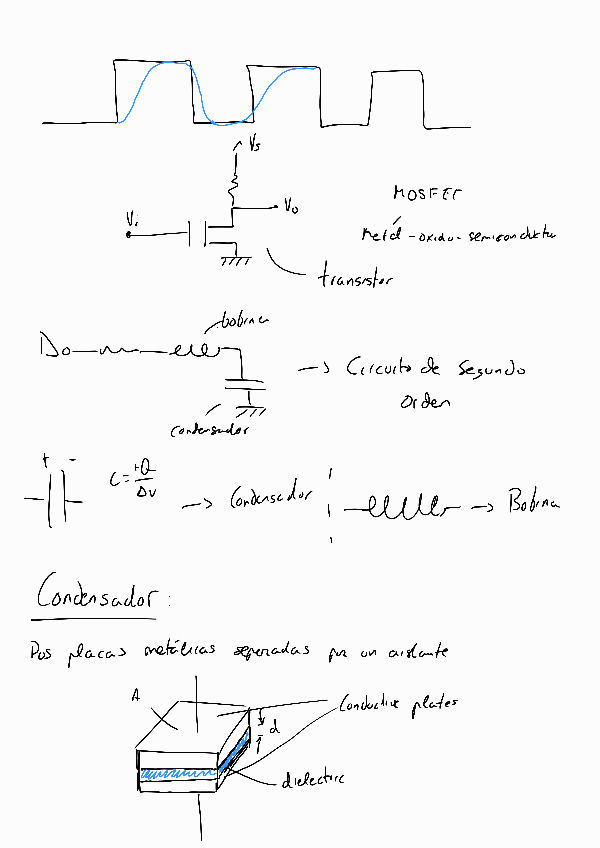 Vs
Vo
Vi
MOSFET
Metal-oxido-semiconductor
transistor
bobina
→ Circuito de segundo
orden
condensador
+ -
C = +Q/Δv
→ Condensador
→ Bobina
Condensador:
Dos placas metálicas separadas por un aislante
A
d
Conductive plates
dielectric